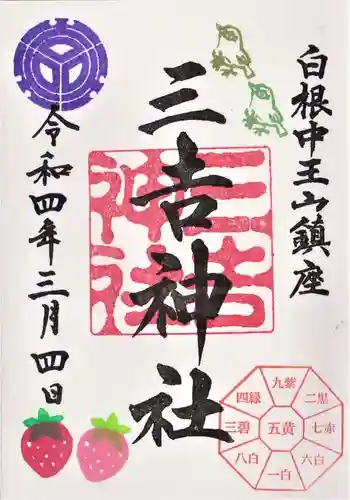 白根中王山鎮座
三吉神社
令和四年三月四日
三吉
神社
九紫
四緑
二黒
三碧
五黄
七赤
八白
六白
一白